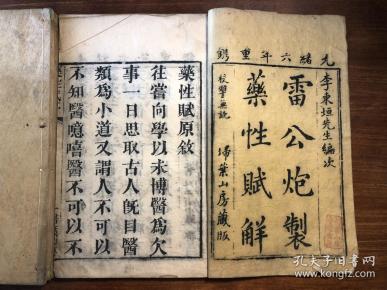 光緒六年重鐫
李東垣先生編次
雷公炮製
藥性賦解
校讐無訛
埽葉山房藏版
藥性賦原敘
往嘗向學以未博醫為欠
事一日思取古人既目醫
類為小道又謂人不可以
不知醫噫嘻醫不可以不
孔夫子旧书网